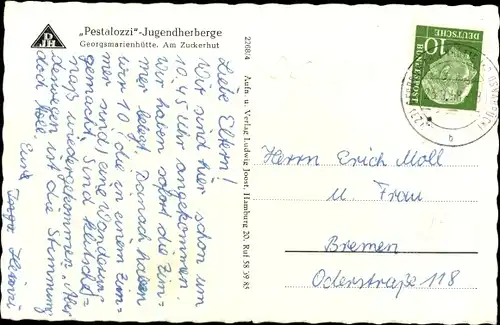 DJH
„Pestalozzi"-Jugendherberge
Georgsmarienhütte. Am Zuckerhut
Liebe Eltern!
Wir sind hier schon um
10.45 Uhr angekommen.
Wir haben sofort die Zim-
mer belegt. Danach haben
wir 10, die in einem Zim-
mer sind, eine Wanderung
gemacht. Sind klitschf=
naß wiedergekommen. Aber
deswegen ist die Stimmung
doch toll.
Eure
2268/4 Aufn. u. Verlag Ludwig Joost, Hamburg 20, Ruf 58 39 85
DEUTSCHE
BUNDESPOST
10
b
Herrn Erich Moll
u. Frau
Bremen
Oderstraße 118